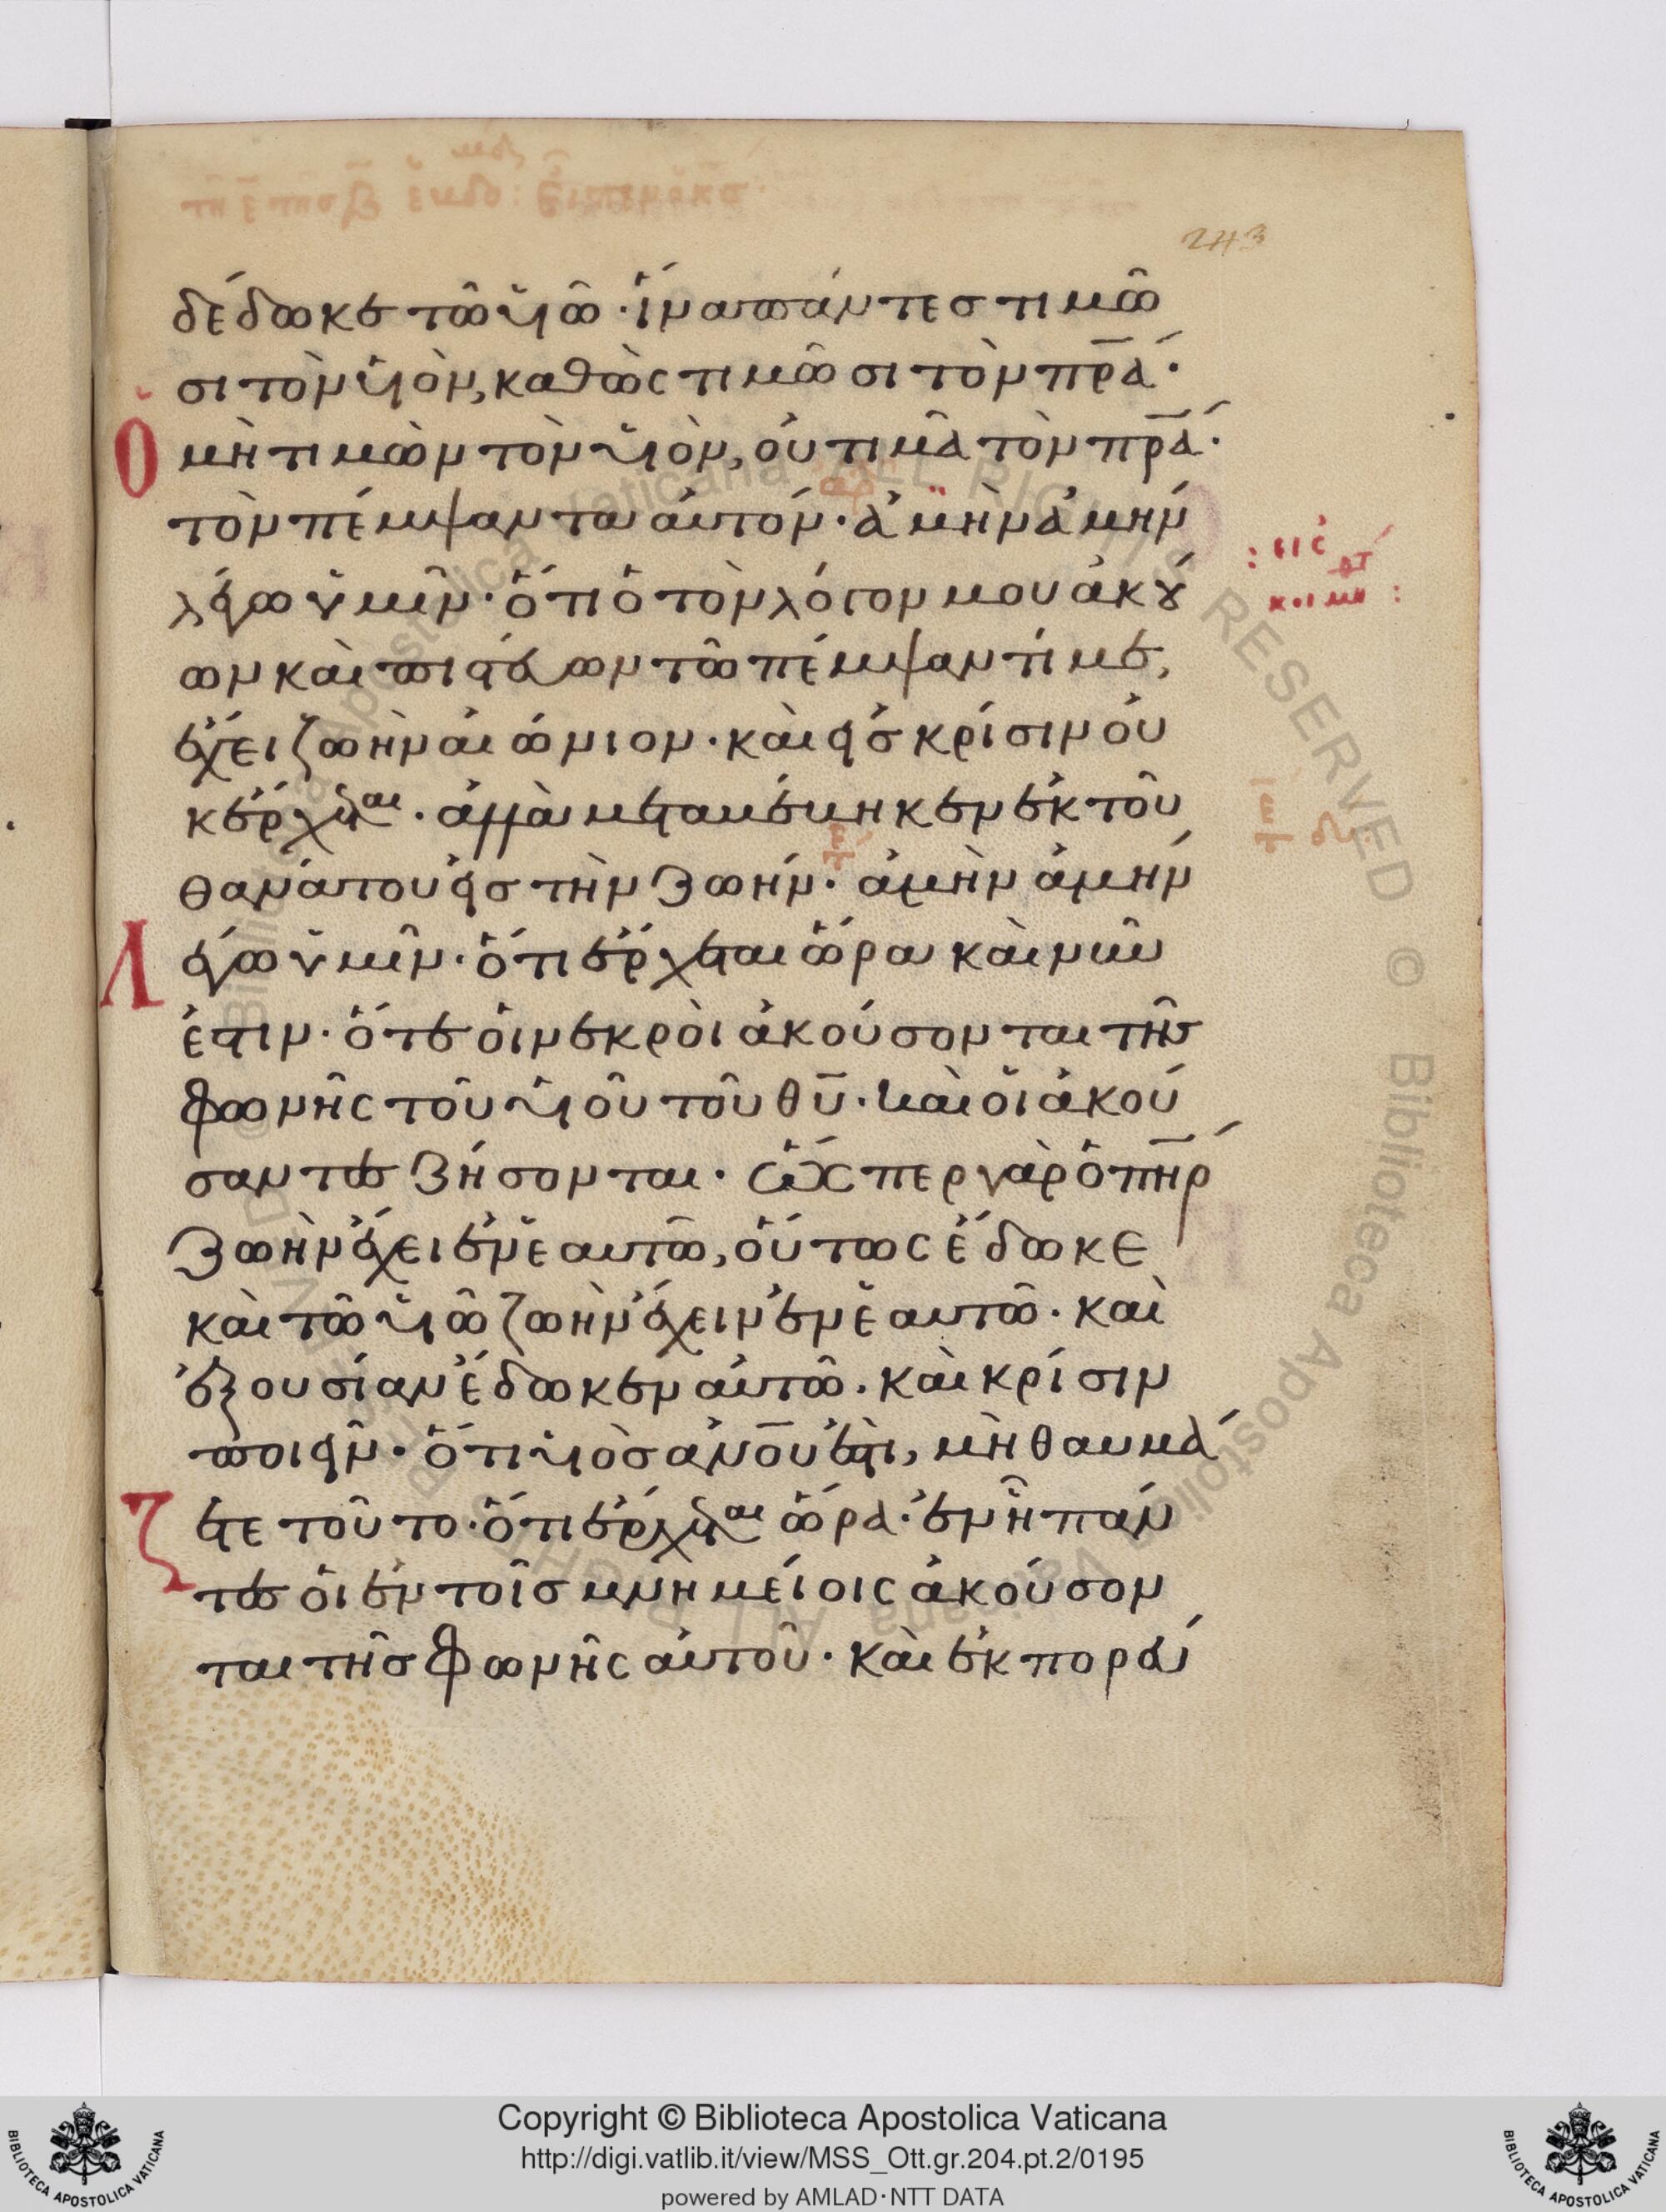 243
δέδωκε τῶ υἱῶ· ἵνα πάντες τιμῶ
σι τὸν υἱὸν, καθὼς τιμῶσι τὸν πρ̅α·
Ὁ μὴ τιμῶν τὸν υἱὸν, οὐ τιμᾶ τὸν πρ̅α·
τὸν πέμψαντα αὐτόν· ἀμὴν ἀμὴν
λέγω ὑμῖν· ὅτι ὁ τὸν λόγον μου ἀκού
: εἰς
κοιμη :
ων καὶ πιστεύων τῶ πέμψαντί με,
ἔχει ζωὴν αἰώνιον· καὶ εἰς κρίσιν οὐ
κ ἔρχεται· ἀλλὰ μεταβέβηκεν ἐκ τοῦ
θανάτου εἰς τὴν ζωήν· ἀμὴν ἀμὴν
Λέγω ὑμῖν· ὅτι ἔρχεται ὥρα καὶ νῦν
ἐστιν· ὅτε οἱ νεκροὶ ἀκούσονται τῆς
φωνῆς τοῦ υἱοῦ τοῦ θ̅υ̅· καὶ οἱ ἀκού
σαντες ζήσονται· ὥσπερ γὰρ ὁ π̅η̅ρ̅
ζωὴν ἔχει ἐν ἑαυτῶ, οὕτως ἔδωκε
καὶ τῶ υἱῶ ζωὴν ἔχειν ἐν ἑαυτῶ· καὶ
ἐξουσίαν ἔδωκεν αὐτῶ· καὶ κρίσιν
ποιεῖν· ὅτι υἱὸς ἀν̅ο̅υ̅ ἐστι, μὴ θαυμά
ζετε τοῦτο· ὅτι ἔρχεται ὥρα· ἐν ἧ πάν
τες οἱ ἐν τοῖς μνημείοις ἀκούσον
ται τῆς φωνῆς αὐτοῦ· καὶ ἐκπορεύ
Biblioteca Apostolica Vaticana ALL RIGHTS RESERVED ©
Copyright © Biblioteca Apostolica Vaticana
http://digi.vatlib.it/view/MSS_Ott.gr.204.pt.2/0195
powered by AMLAD·NTT DATA
BIBLIOTECA APOSTOLICA VATICANA
BIBLIOTECA APOSTOLICA VATICANA